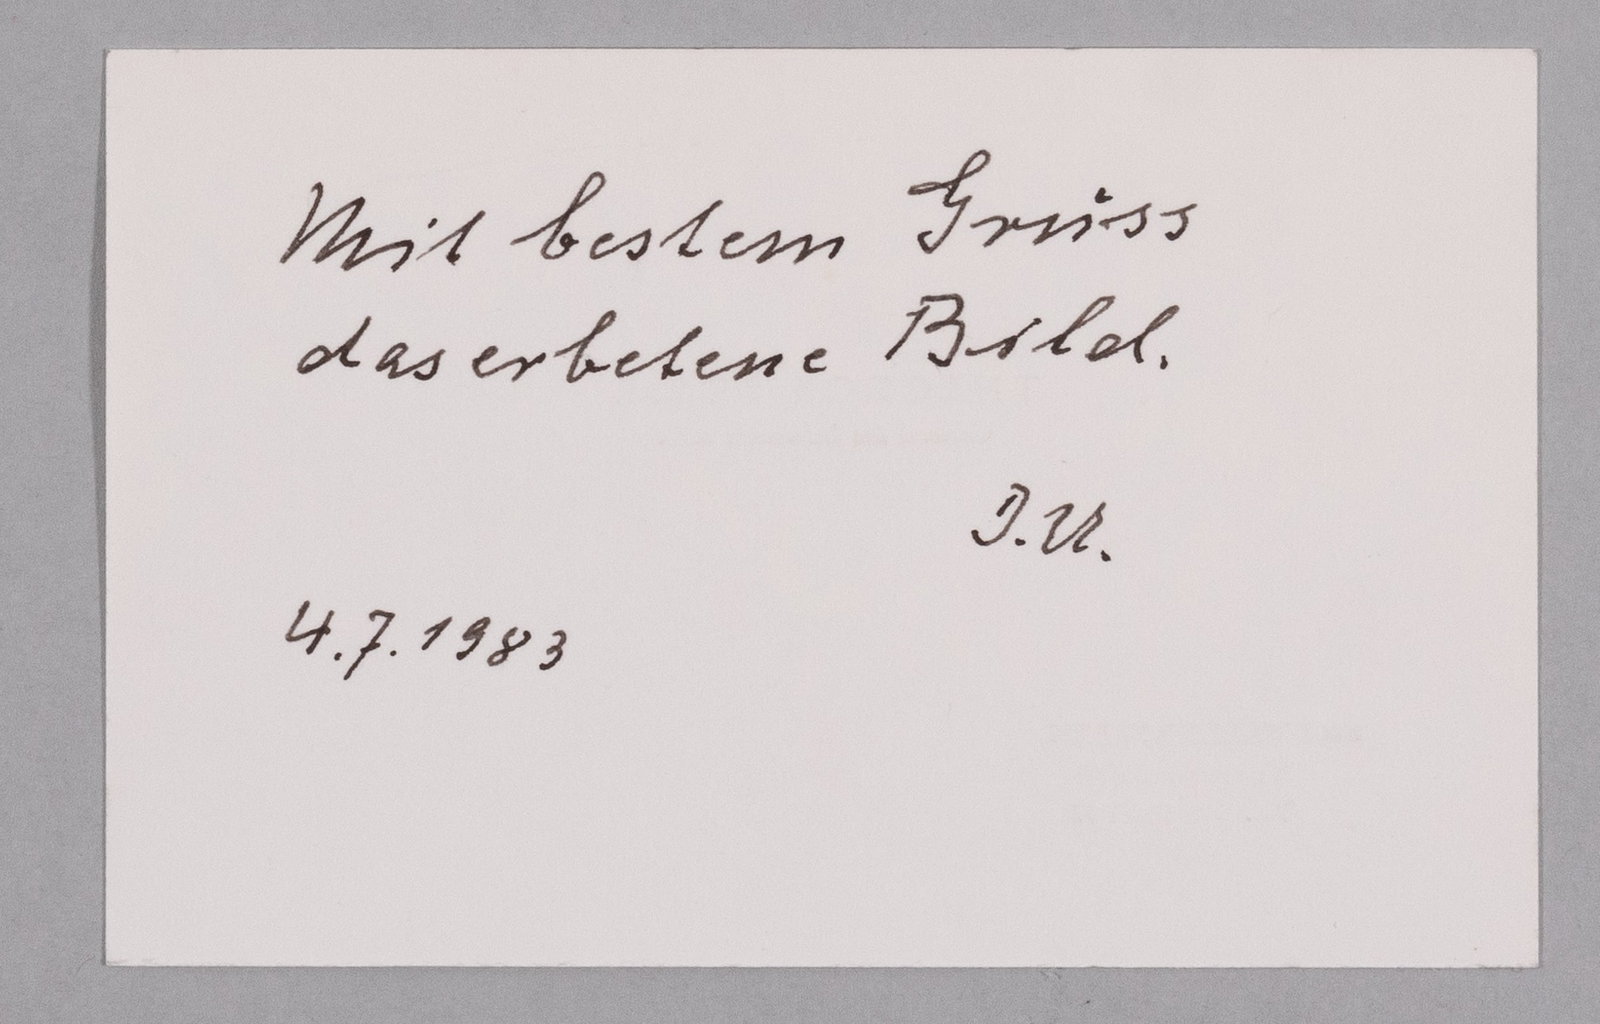 Mit bestem Gruss
das erbetene Bild.
J.U.
4.7.1983